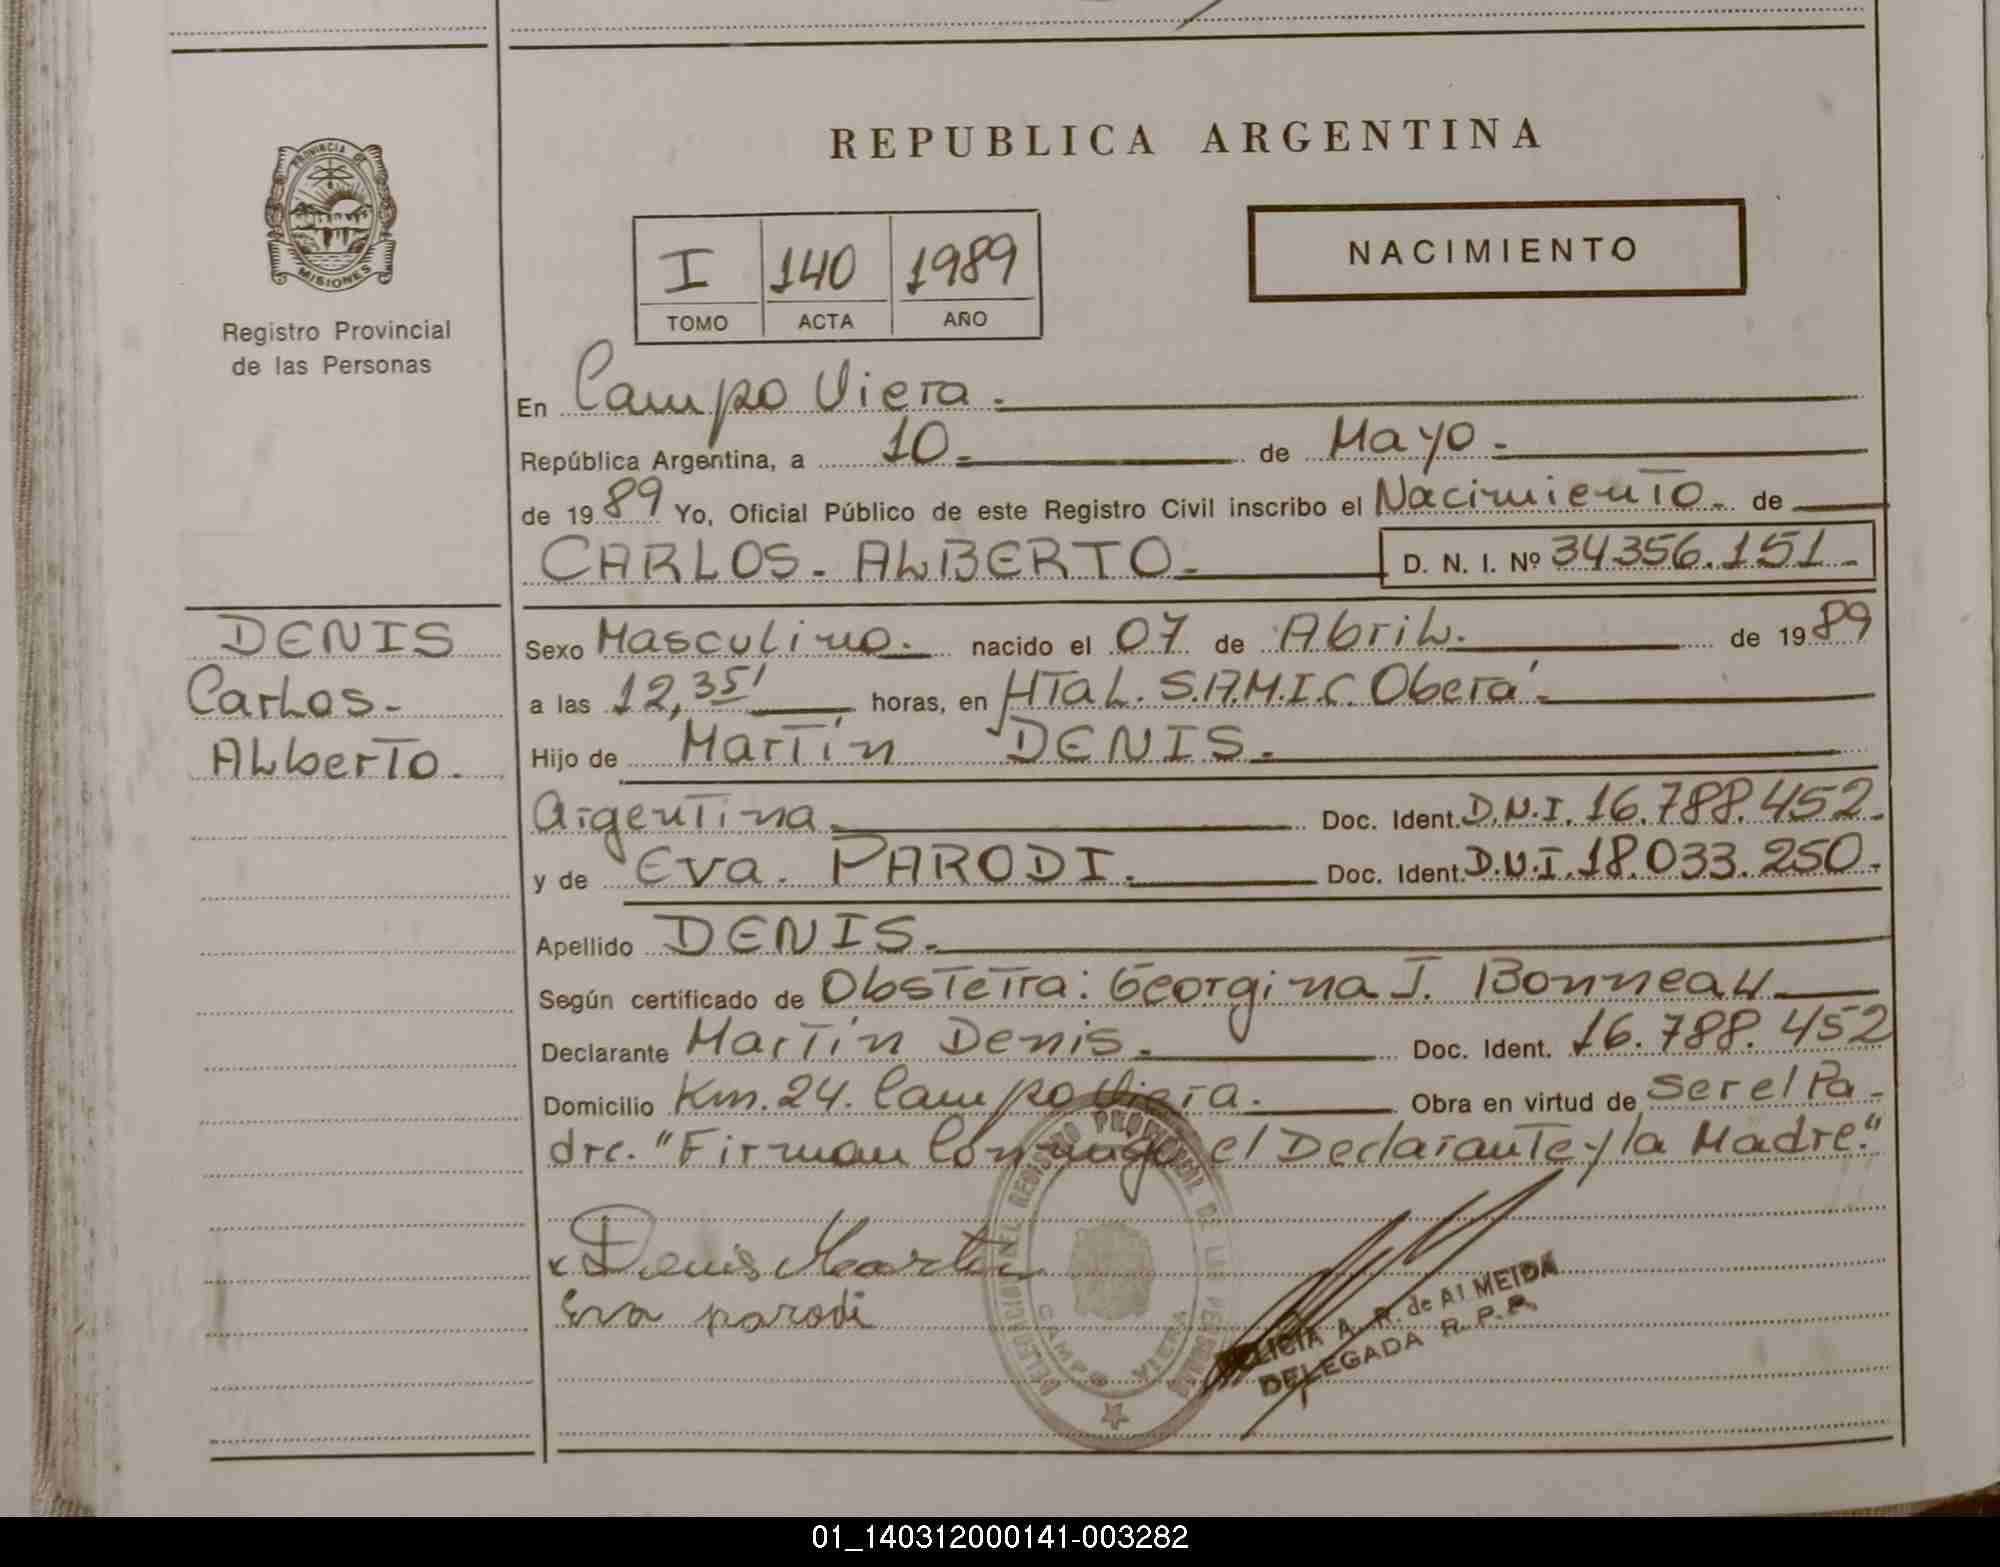 REPUBLICA ARGENTINA
PROVINCIA DE
MISIONES
Registro Provincial
de las Personas
NACIMIENTO
I 140 1989
TOMO ACTA AÑO
En Campo Viera.
República Argentina, a 10 de Mayo.
de 1989 Yo, Oficial Público de este Registro Civil inscribo el Nacimiento. de
CARLOS. ALBERTO. D. N. I. Nº 34356.151.
DENIS
Carlos.
Alberto.
Sexo Masculino. nacido el 07 de Abril. de 1989
a las 12,35' horas, en HTal. S.A.M.I.C. Oberá.
Hijo de Martín DENIS.
Argentina. Doc. Ident. D.N.I. 16.788.452.
y de Eva. PARODI. Doc. Ident. D.N.I. 18.033.250.
Apellido DENIS.
Según certificado de Obstetra: Georgina J. Bonneau
Declarante Martín Denis. Doc. Ident. 16.788.452
Domicilio Km. 24. Campo Viera. Obra en virtud de ser el Pa-
dre. "Firman Conmigo el Declarante y la Madre."
Denis Martin
Eva parodi
REGISTRO PROVINCIAL DE LAS PERSONAS
CAMPO VIERA
A. R. de ALMEIDA
DELEGADA R. P. P.
01_140312000141-003282